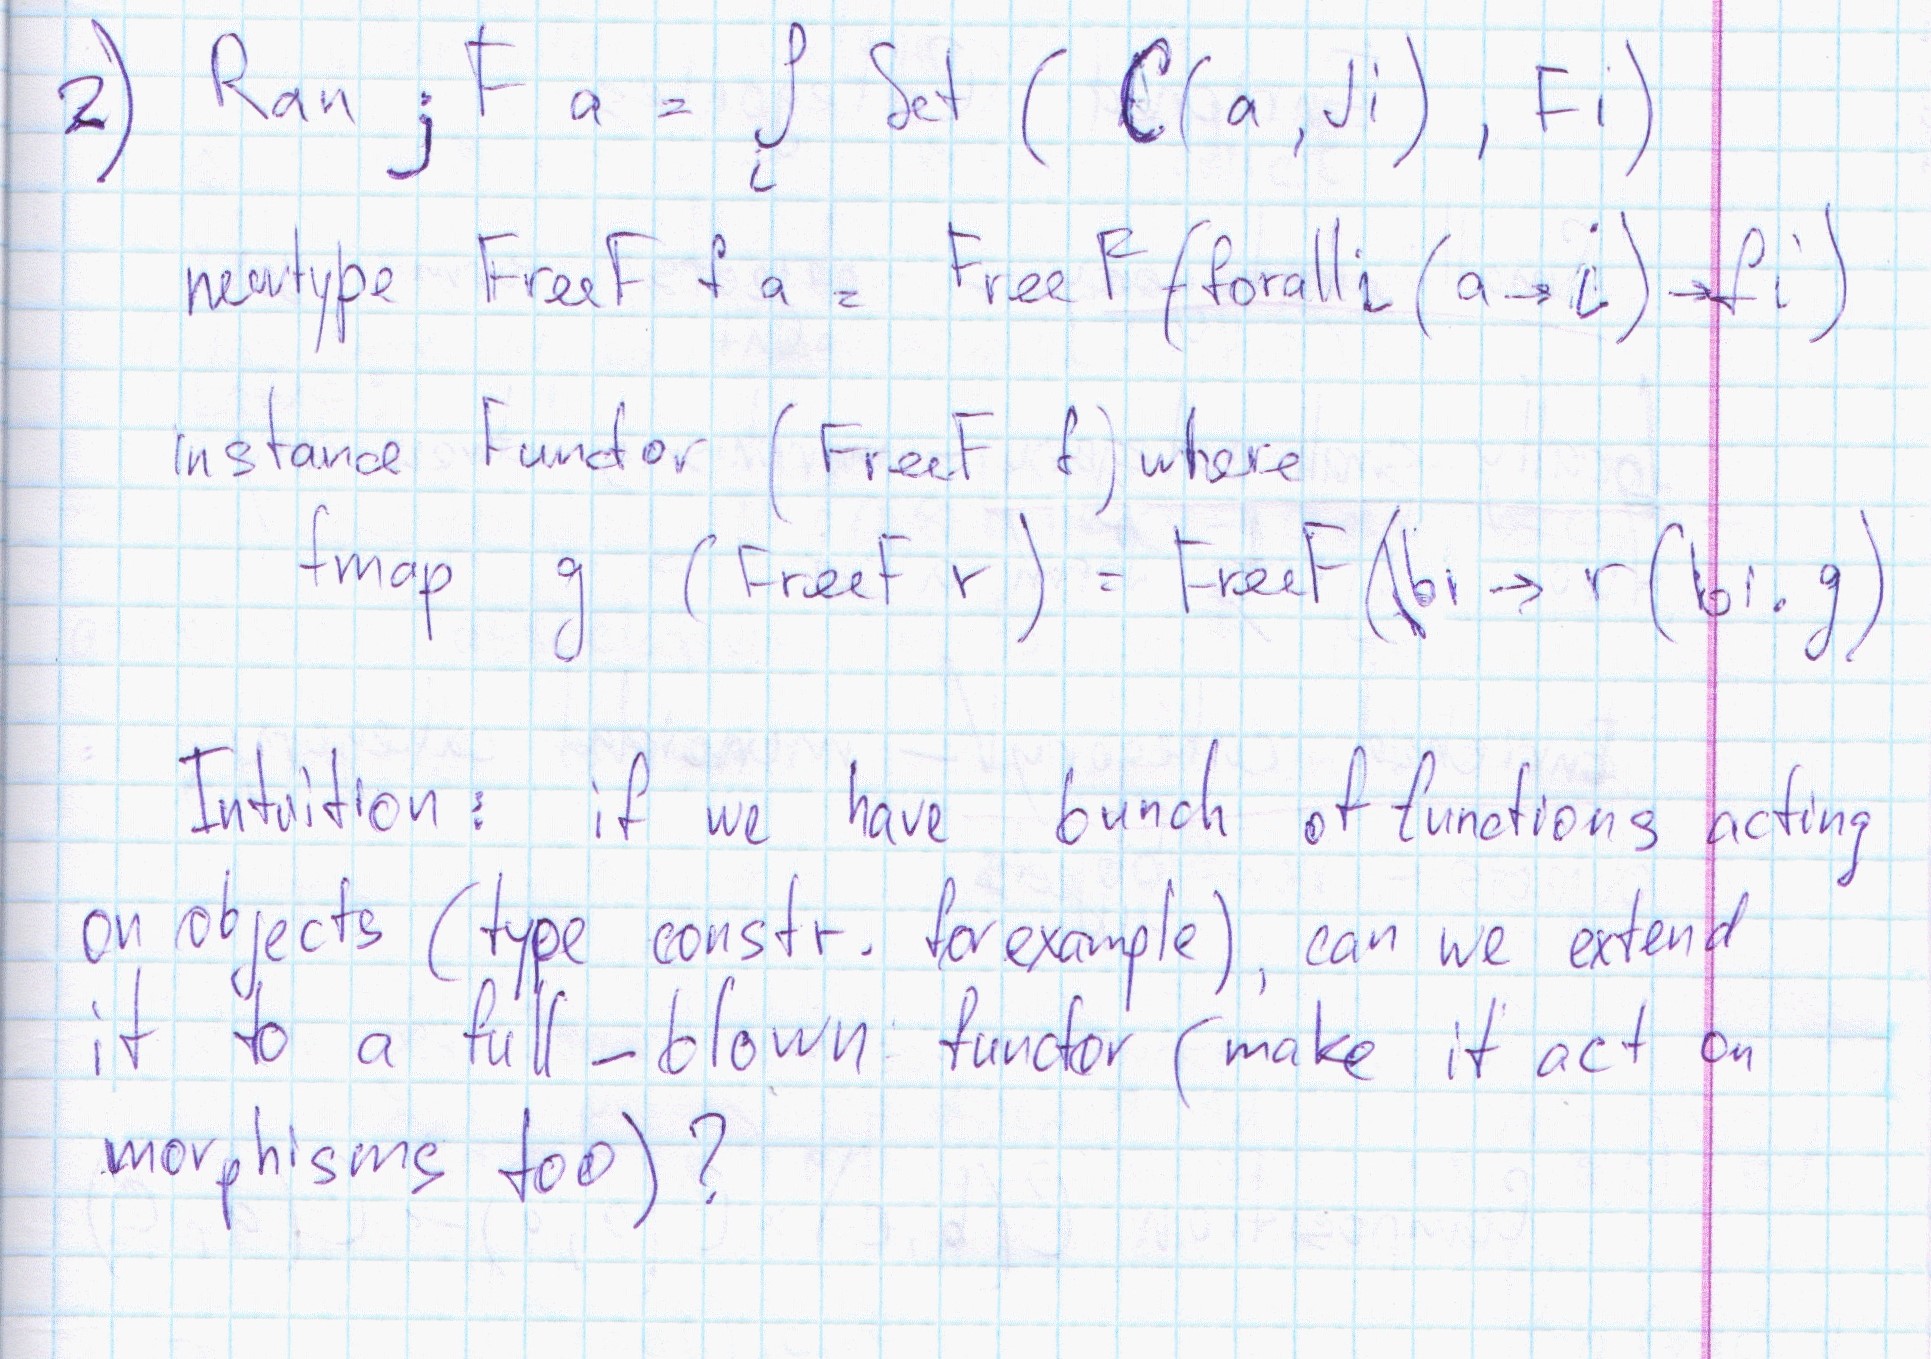 2) Ran j F a = ∫ i Set ( C(a, Ji) , Fi)
newtype FreeF f a = FreeF (forall i (a → i) → f i)
instance Functor (FreeF f) where
fmap g (FreeF r) = FreeF (\bi → r (bi . g)
Intuition: if we have bunch of functions acting
on objects (type constr. for example), can we extend
it to a full-blown functor (make it act on
morphisms too)?